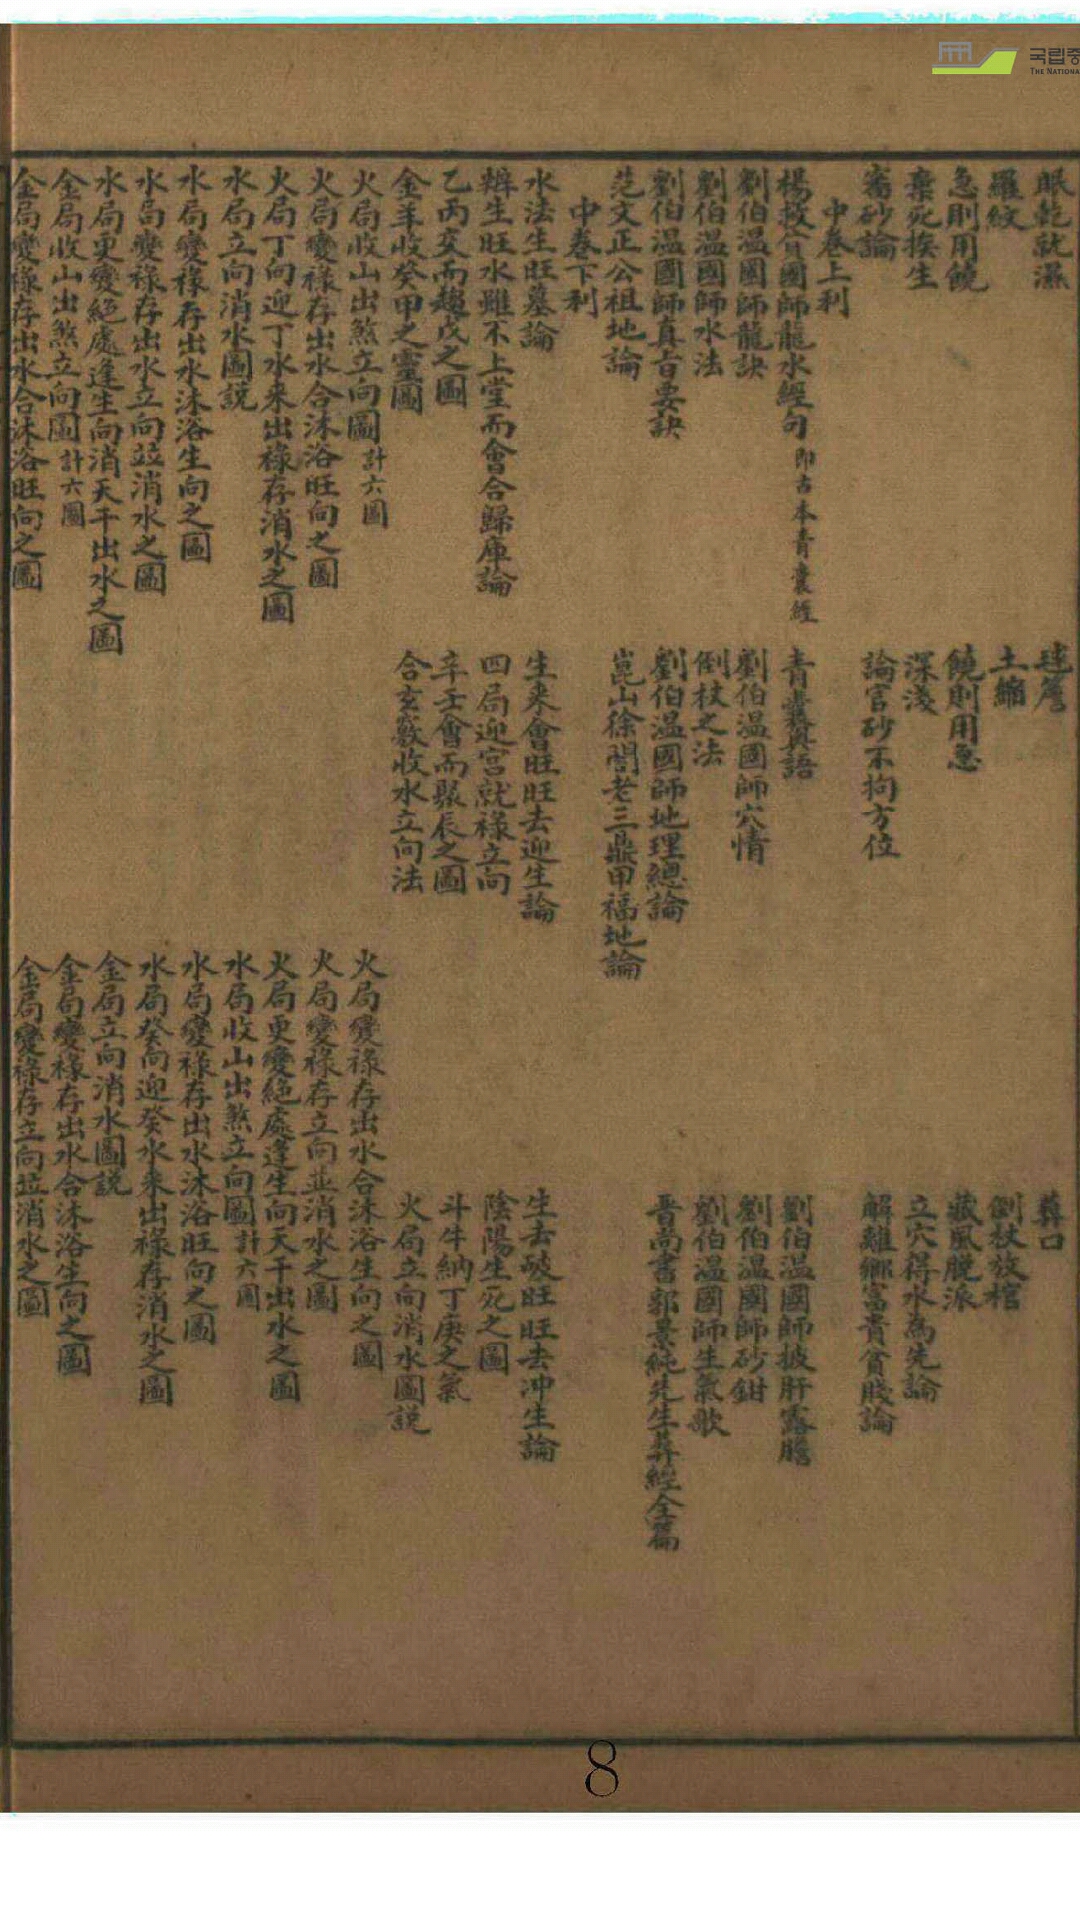 국립중
THE NATIONA
眠乾就濕
毬簷
葬口
羅紋
土縮
倒杖放棺
急則用饒
饒則用急
藏風脫派
棄死挨生
深淺
立穴得水為先論
審砂論
論官砂不拘方位
解離鄉富貴貧賤論
中卷上利
楊救貧國師龍水經句 即古本青囊經
青囊真語
劉伯溫國師披肝露膽
劉伯溫國師龍訣
劉伯溫國師穴情
劉伯溫國師砂鉗
劉伯溫國師水法
倒杖之法
劉伯溫國師生氣歌
劉伯溫國師真旨要訣
劉伯溫國師地理總論
晋尚書郭景純先生葬經全篇
范文正公祖地論
崑山徐閣老三鼎甲福地論
中卷下利
水法生旺墓論
生來會旺旺去迎生論
生去破旺旺去冲生論
辨生旺水雖不上堂而會合歸庫論
四局迎宫就祿立向
陰陽生死之圖
乙丙交而趨戌之圖
辛壬會而聚辰之圖
斗牛納丁庚之氣
金羊收癸甲之靈圖
合玄竅收水立向法
火局立向消水圖説
火局收山出煞立向圖 計六圖
火局變祿存出水合沐浴生向之圖
火局變祿存出水合沐浴旺向之圖
火局變祿存立向並消水之圖
火局丁向迎丁水來出祿存消水之圖
火局更變絕處逢生向天干出水之圖
水局立向消水圖説
水局收山出煞立向圖 計六圖
水局變祿存出水沐浴生向之圖
水局變祿存出水沐浴旺向之圖
水局變祿存出水立向並消水之圖
水局癸向迎癸水來出祿存消水之圖
水局更變絕處逢生向消天干出水之圖
金局立向消水圖説
金局收山出煞立向圖 計六圖
金局變祿存出水合沐浴生向之圖
金局變祿存出水合沐浴旺向之圖
金局變祿存立向並消水之圖
8